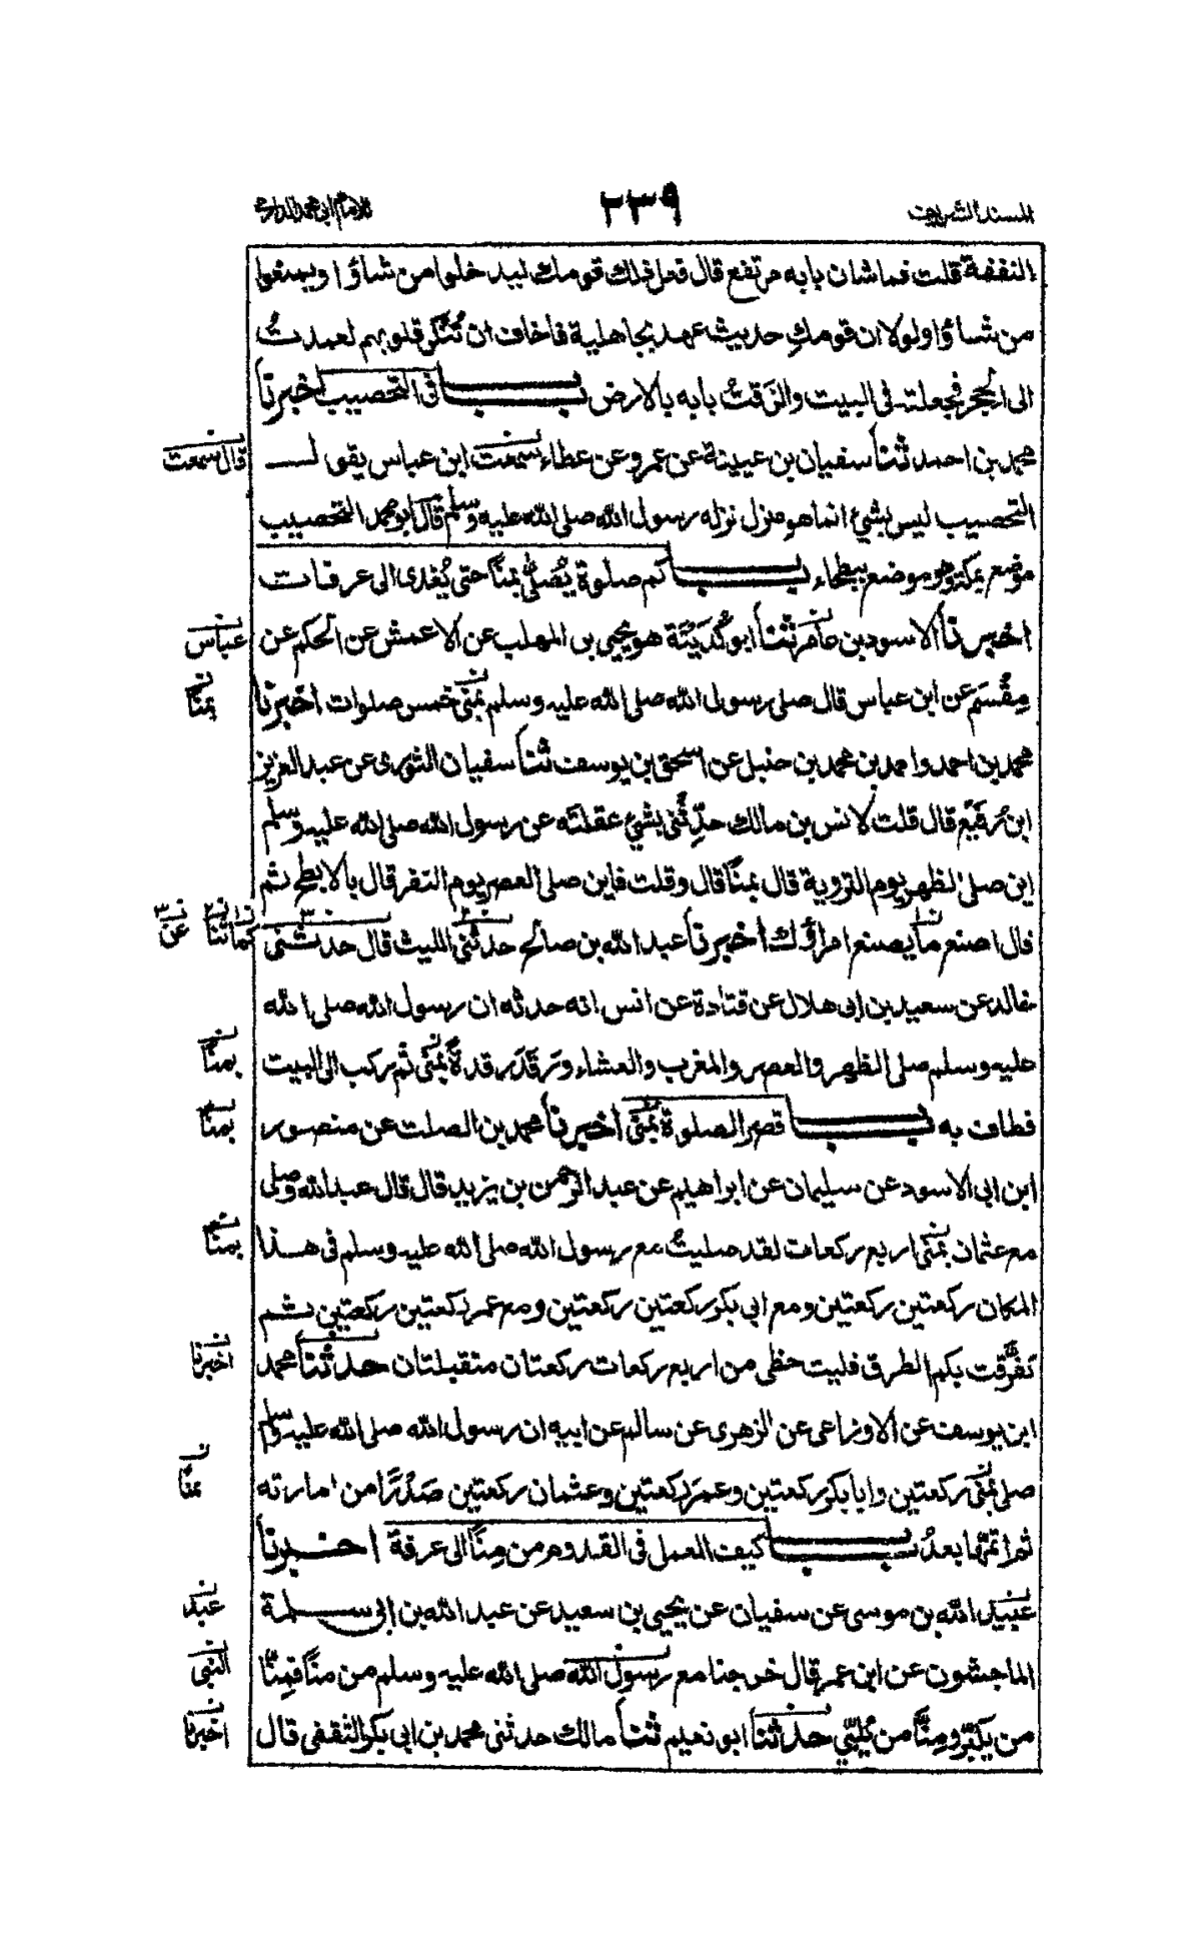 المسند الشريف ٢٣٩ للامام ابى محمد الدارمى
النفقة قلت فما شان بابه مرتفع قال فعل ذلك قومك ليدخلوا من شاؤا ويمنعوا
من شاؤا ولولا ان قومكِ حديث عهد بجاهلية فاخاف ان تُنْكِر قلوبهم لعمدتُ
الى الحِجر فجعلته فى البيت والزَقتُ بابه بالارض بــاب فى التحصيب اخبرنا
محمد بن احمد ثنا سفيان بن عيينة عن عمرو عن عطاء سمعت ابن عباس يقول
قال سمعت
التحصيب ليس بشئ انما هو منزل نزله رسول الله صلى الله عليه وسلم قال ابو محمد التحصيب
موضع بمكة وهو موضع ببطحاء بــاب كم صلوة يُصَلّٰى بمنًا حتى يُغدى الى عرفات
اخبرنا الاسود بن عامر ثنا ابو كُدَيْنَة هو يحيى بن المهلب عن الاعمش عن الحكم عن
عباس
مِقْسَم عن ابن عباس قال صلى رسول الله صلى الله عليه وسلم بمنى خمس صلوات اخبرنا
بمنًا
محمد بن احمد واحمد بن محمد بن حنبل عن اسحق بن يوسف ثنا سفيان الثورى عن عبد العزيز
ابن رُفَيْع قال قلت لانس بن مالك حدِّثنى بشئ عقلتَه عن رسول الله صلى الله عليه وسلم
اين صلى الظهر يوم التروية قال بمنًا قال وقلت فاين صلى العصر يوم النفر قال بالابطح ثم
قال اصنع ما يصنع امراؤك اخبرنا عبد الله بن صالح حدثنى الليث قال حدثنى
كما ثنا عن
خالد عن سعيد بن ابى هلال عن قتادة عن انس انه حدثه ان رسول الله صلى الله
عليه وسلم صلى الظهر والعصر والمغرب والعشاء ورَقَدَ رقدةً بمنى ثم ركب الى البيت
بمنًا
فطاف به بــاب قصر الصلوة بمنى اخبرنا محمد بن الصلت عن منصور
بمنًا
ابن ابى الاسود عن سليمان عن ابراهيم عن عبد الرحمن بن يزيد قال قال عبد الله وصلى
مع عثمان بمنى اربع ركعات لقد صليتُ مع رسول الله صلى الله عليه وسلم فى هذا
بمنًا
المكان ركعتين ركعتين ومع ابى بكر ركعتين ركعتين ومع عمر ركعتين ركعتين ثم
تفرَّقت بكم الطرق فليت حظى من اربع ركعات ركعتان متقبلتان حدثنا محمد
اخبرنا
ابن يوسف عن الاوزاعى عن الزهرى عن سالم عن ابيه ان رسول الله صلى الله عليه وسلم
صلى بمنى ركعتين وابا بكر ركعتين وعمر ركعتين وعثمان ركعتين صَدْرًا من امارته
بمنًا
ثم اتمّها بعدُ بــاب كيف العمل فى القدوم من مِنًا الى عرفة اخبرنا
عبيد الله بن موسى عن سفيان عن يحيى بن سعيد عن عبد الله بن ابى سلمة
عبد
الماجشون عن ابن عمر قال خرجنا مع رسول الله صلى الله عليه وسلم من منًا فمِنّا
النبى
من يكبّر ومِنّا من يُلبّي حدثنا ابو نعيم ثنا مالك حدثنى محمد بن ابى بكر الثقفى قال
اخبرنا